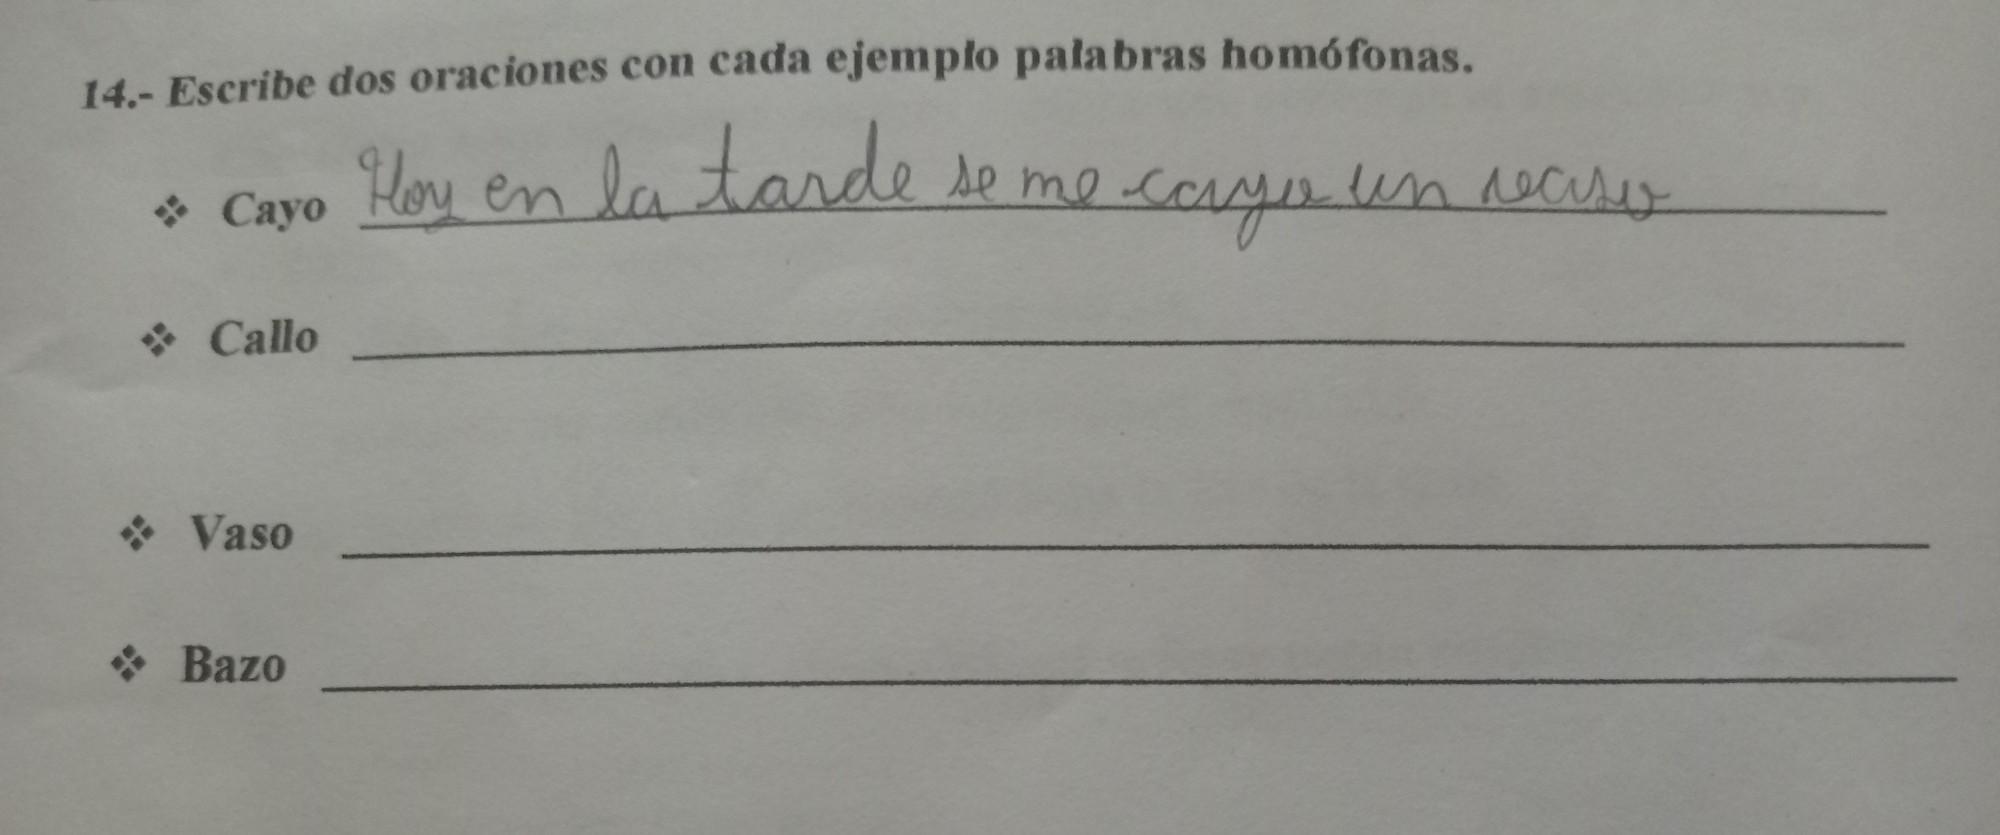 14.- Escribe dos oraciones con cada ejemplo palabras homófonas.
❖ Cayo Hoy en la tarde se me cayo un vaso
❖ Callo
❖ Vaso
❖ Bazo